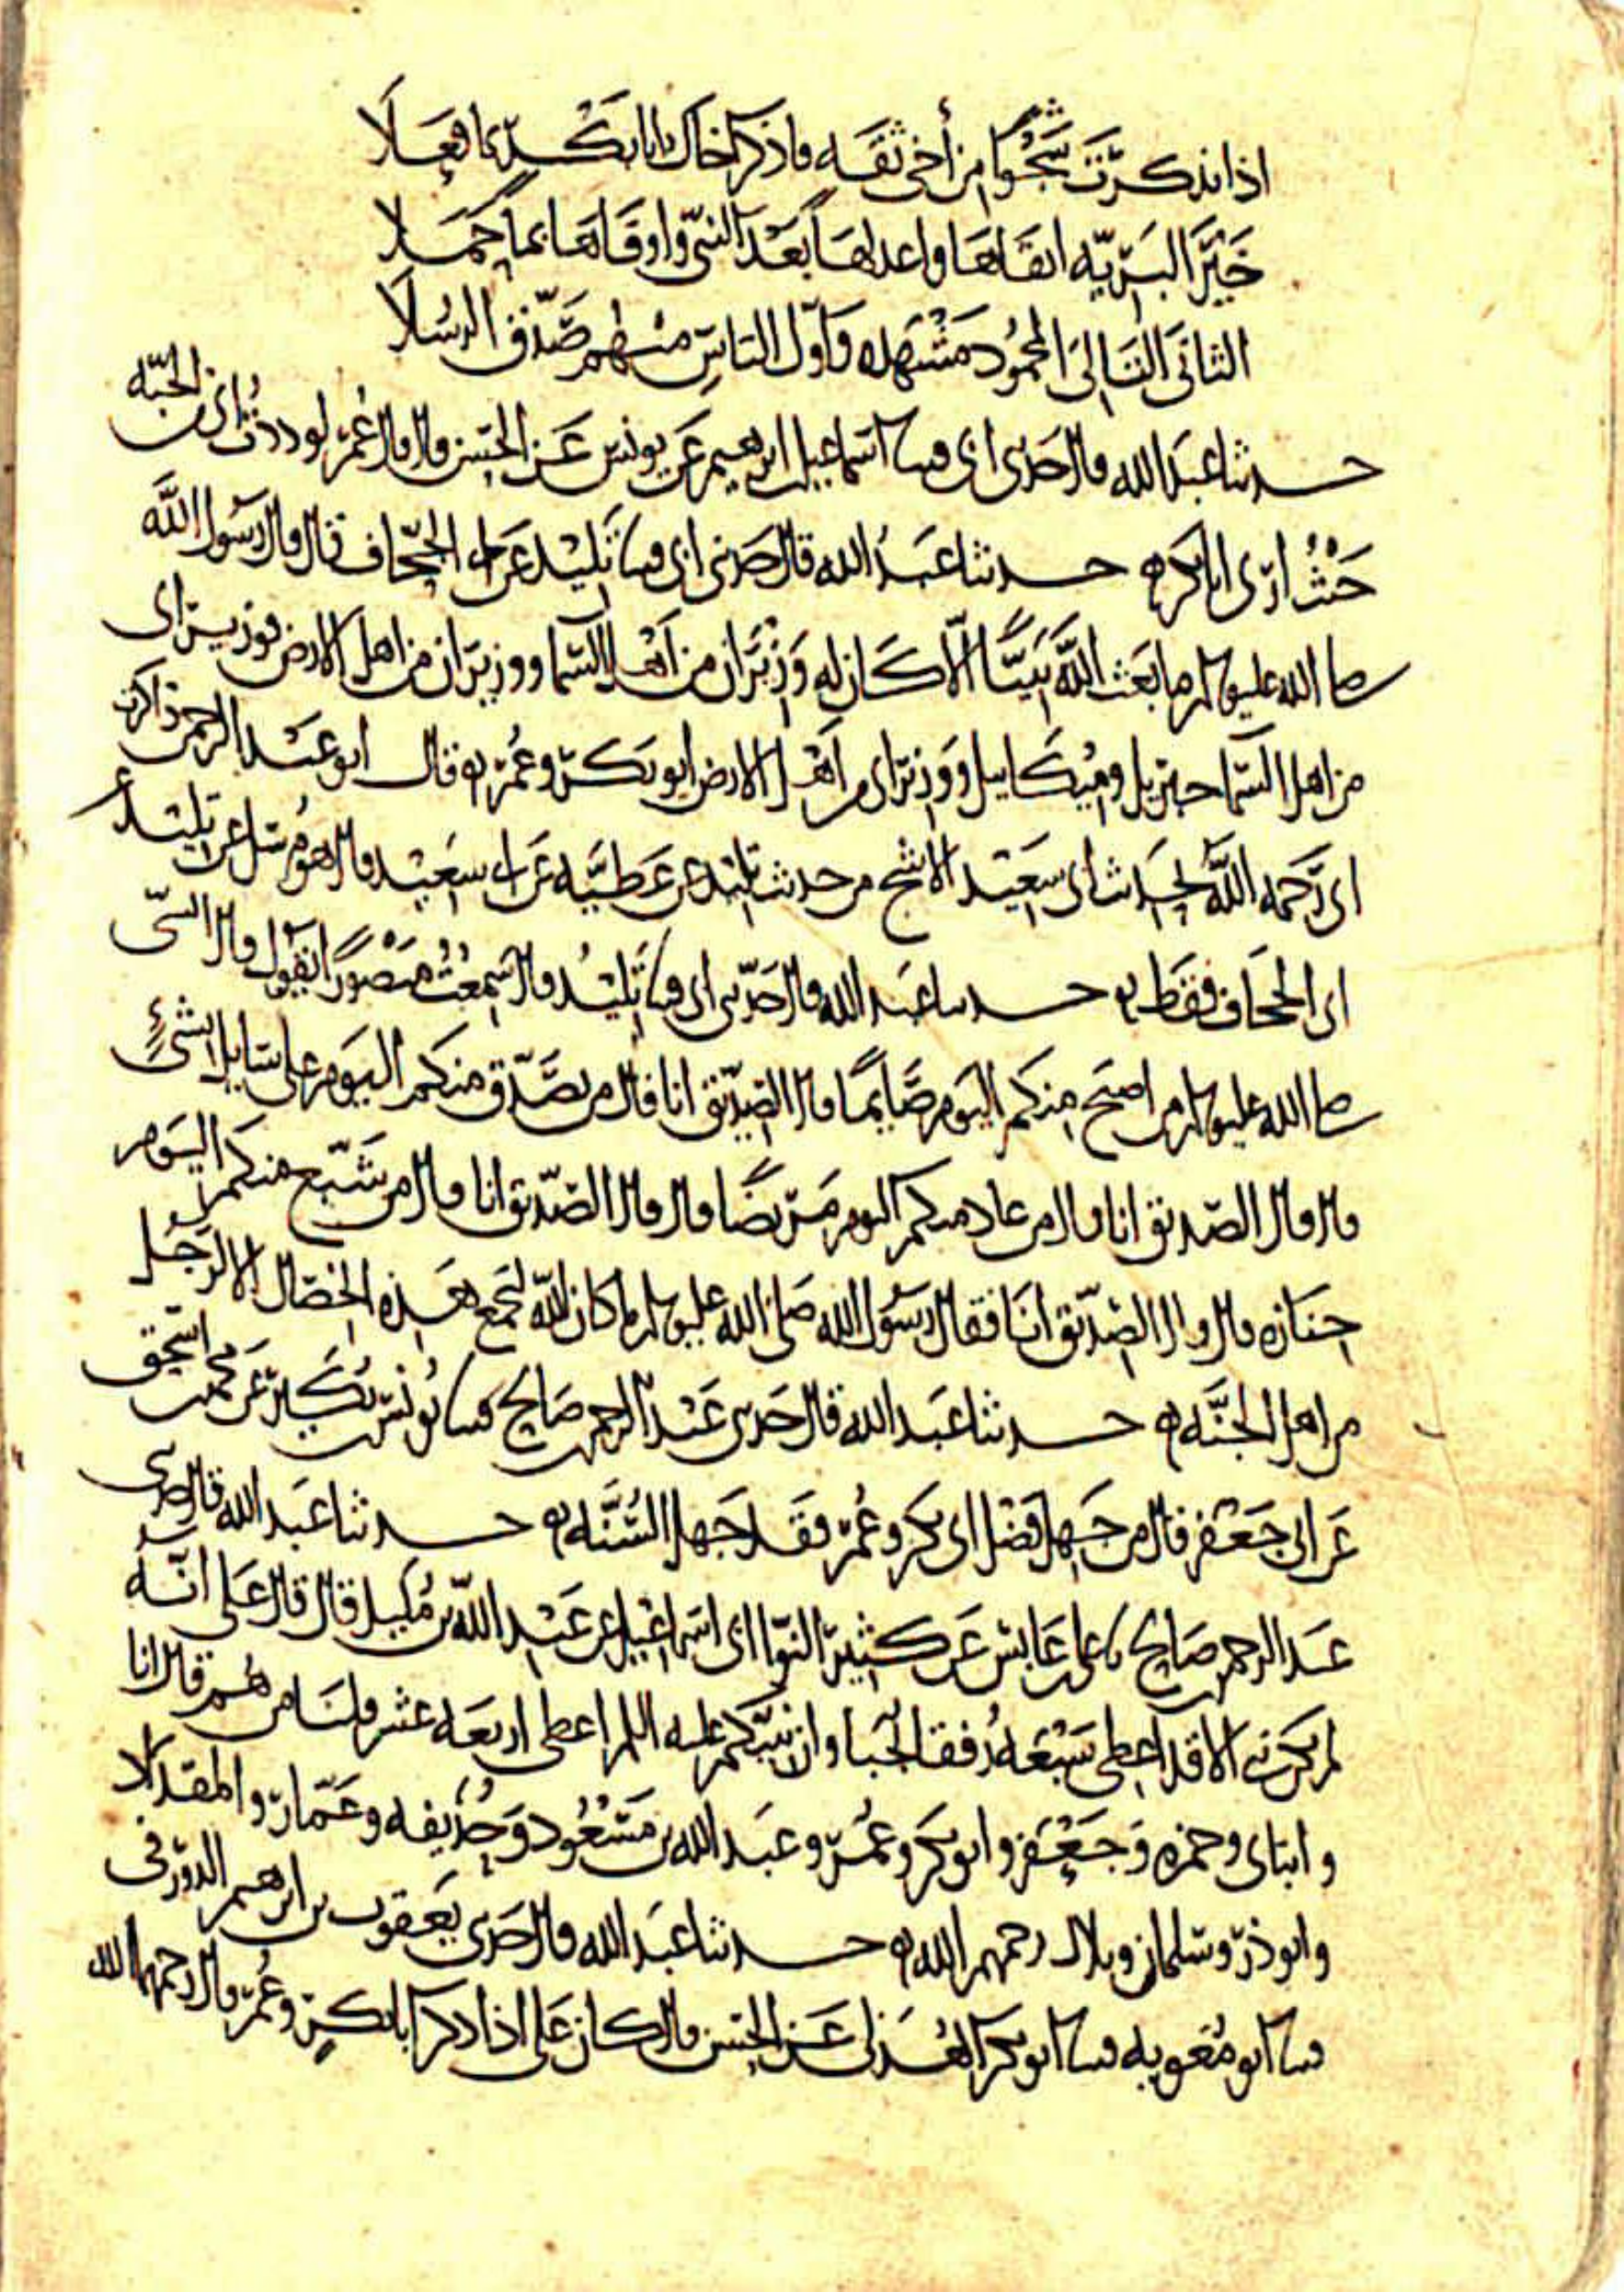 اذا تذكرت شجوا من أخي ثقه فاذكر اخاك ابا بكر بما فعلا
خير البريه اتقاها واعدلها بعد النبي واوفاها بما حملا
الثاني التالي المحمود مشهده واول الناس منهم صدق الرسلا
حدثنا عبد الله قال حدثني ابي قثنا اسماعيل بن ابرهيم عن يونس عن الحسن قال قال عمر لوددت اني من الجنه
حيث ارى ابا بكر ه حدثنا عبد الله قال حدثني ابي قثنا تليد عن ابي الجحاف قال قال رسول الله
صلى الله عليه وسلم ما بعث الله نبيا الا كان له وزيران من اهل السما ووزيران من اهل الارض فوزيراي
من اهل السما جبريل وميكاييل ووزيراي من اهل الارض ابو بكر وعمر ه قال ابو عبد الرحمن ذاكرت
ابي رحمه الله بحديث ابي سعيد الاشج من حديث تليد عن عطيه عن ابي سعيد قال هو مرسل عن تليد عن
ابي الجحاف فقط ه حدثنا عبد الله قال حدثني ابي قثنا تليد قال سمعت منصورا يقول قال النبي
صلى الله عليه وسلم من اصبح منكم اليوم صايما قال الصديق انا قال من تصدق منكم اليوم على سايل بشيء
قال قال الصديق انا قال من عاد منكم اليوم مريضا قال قال الصديق انا قال من شيع منكم اليوم
جنازه قال قال الصديق انا فقال رسول الله صلى الله عليه وسلم ما كان الله ليجمع هذه الخصال الا لرجل
من اهل الجنه ه حدثنا عبد الله قال حدثني عبد الرحمن بن صالح قثنا يونس بن بكير عن محمد بن اسحق
عن ابي جعفر قال من جهل فضل ابي بكر وعمر فقد جهل السنه ه حدثنا عبد الله قال حدثني
عبد الرحمن بن صالح نا علي بن عابس عن كثير النوا ابي اسماعيل عن عبد الله بن مليل قال قال علي انه
لم يكن نبي الا قد اعطي سبعه رفقا نجبا وان نبيكم عليه السلم اعطي اربعه عشر قلنا من هم قال انا
وابناي وحمزه وجعفر وابو بكر وعمر وعبد الله بن مسعود وحذيفه وعمار والمقداد
وابو ذر وسلمان وبلال رحمهم الله ه حدثنا عبد الله قال حدثني يعقوب بن ابرهيم الدورقي
قثنا ابو معويه قثنا ابو بكر الهذلي عن الحسن قال كان علي اذا ذكر ابا بكر وعمر قال رحمهما الله